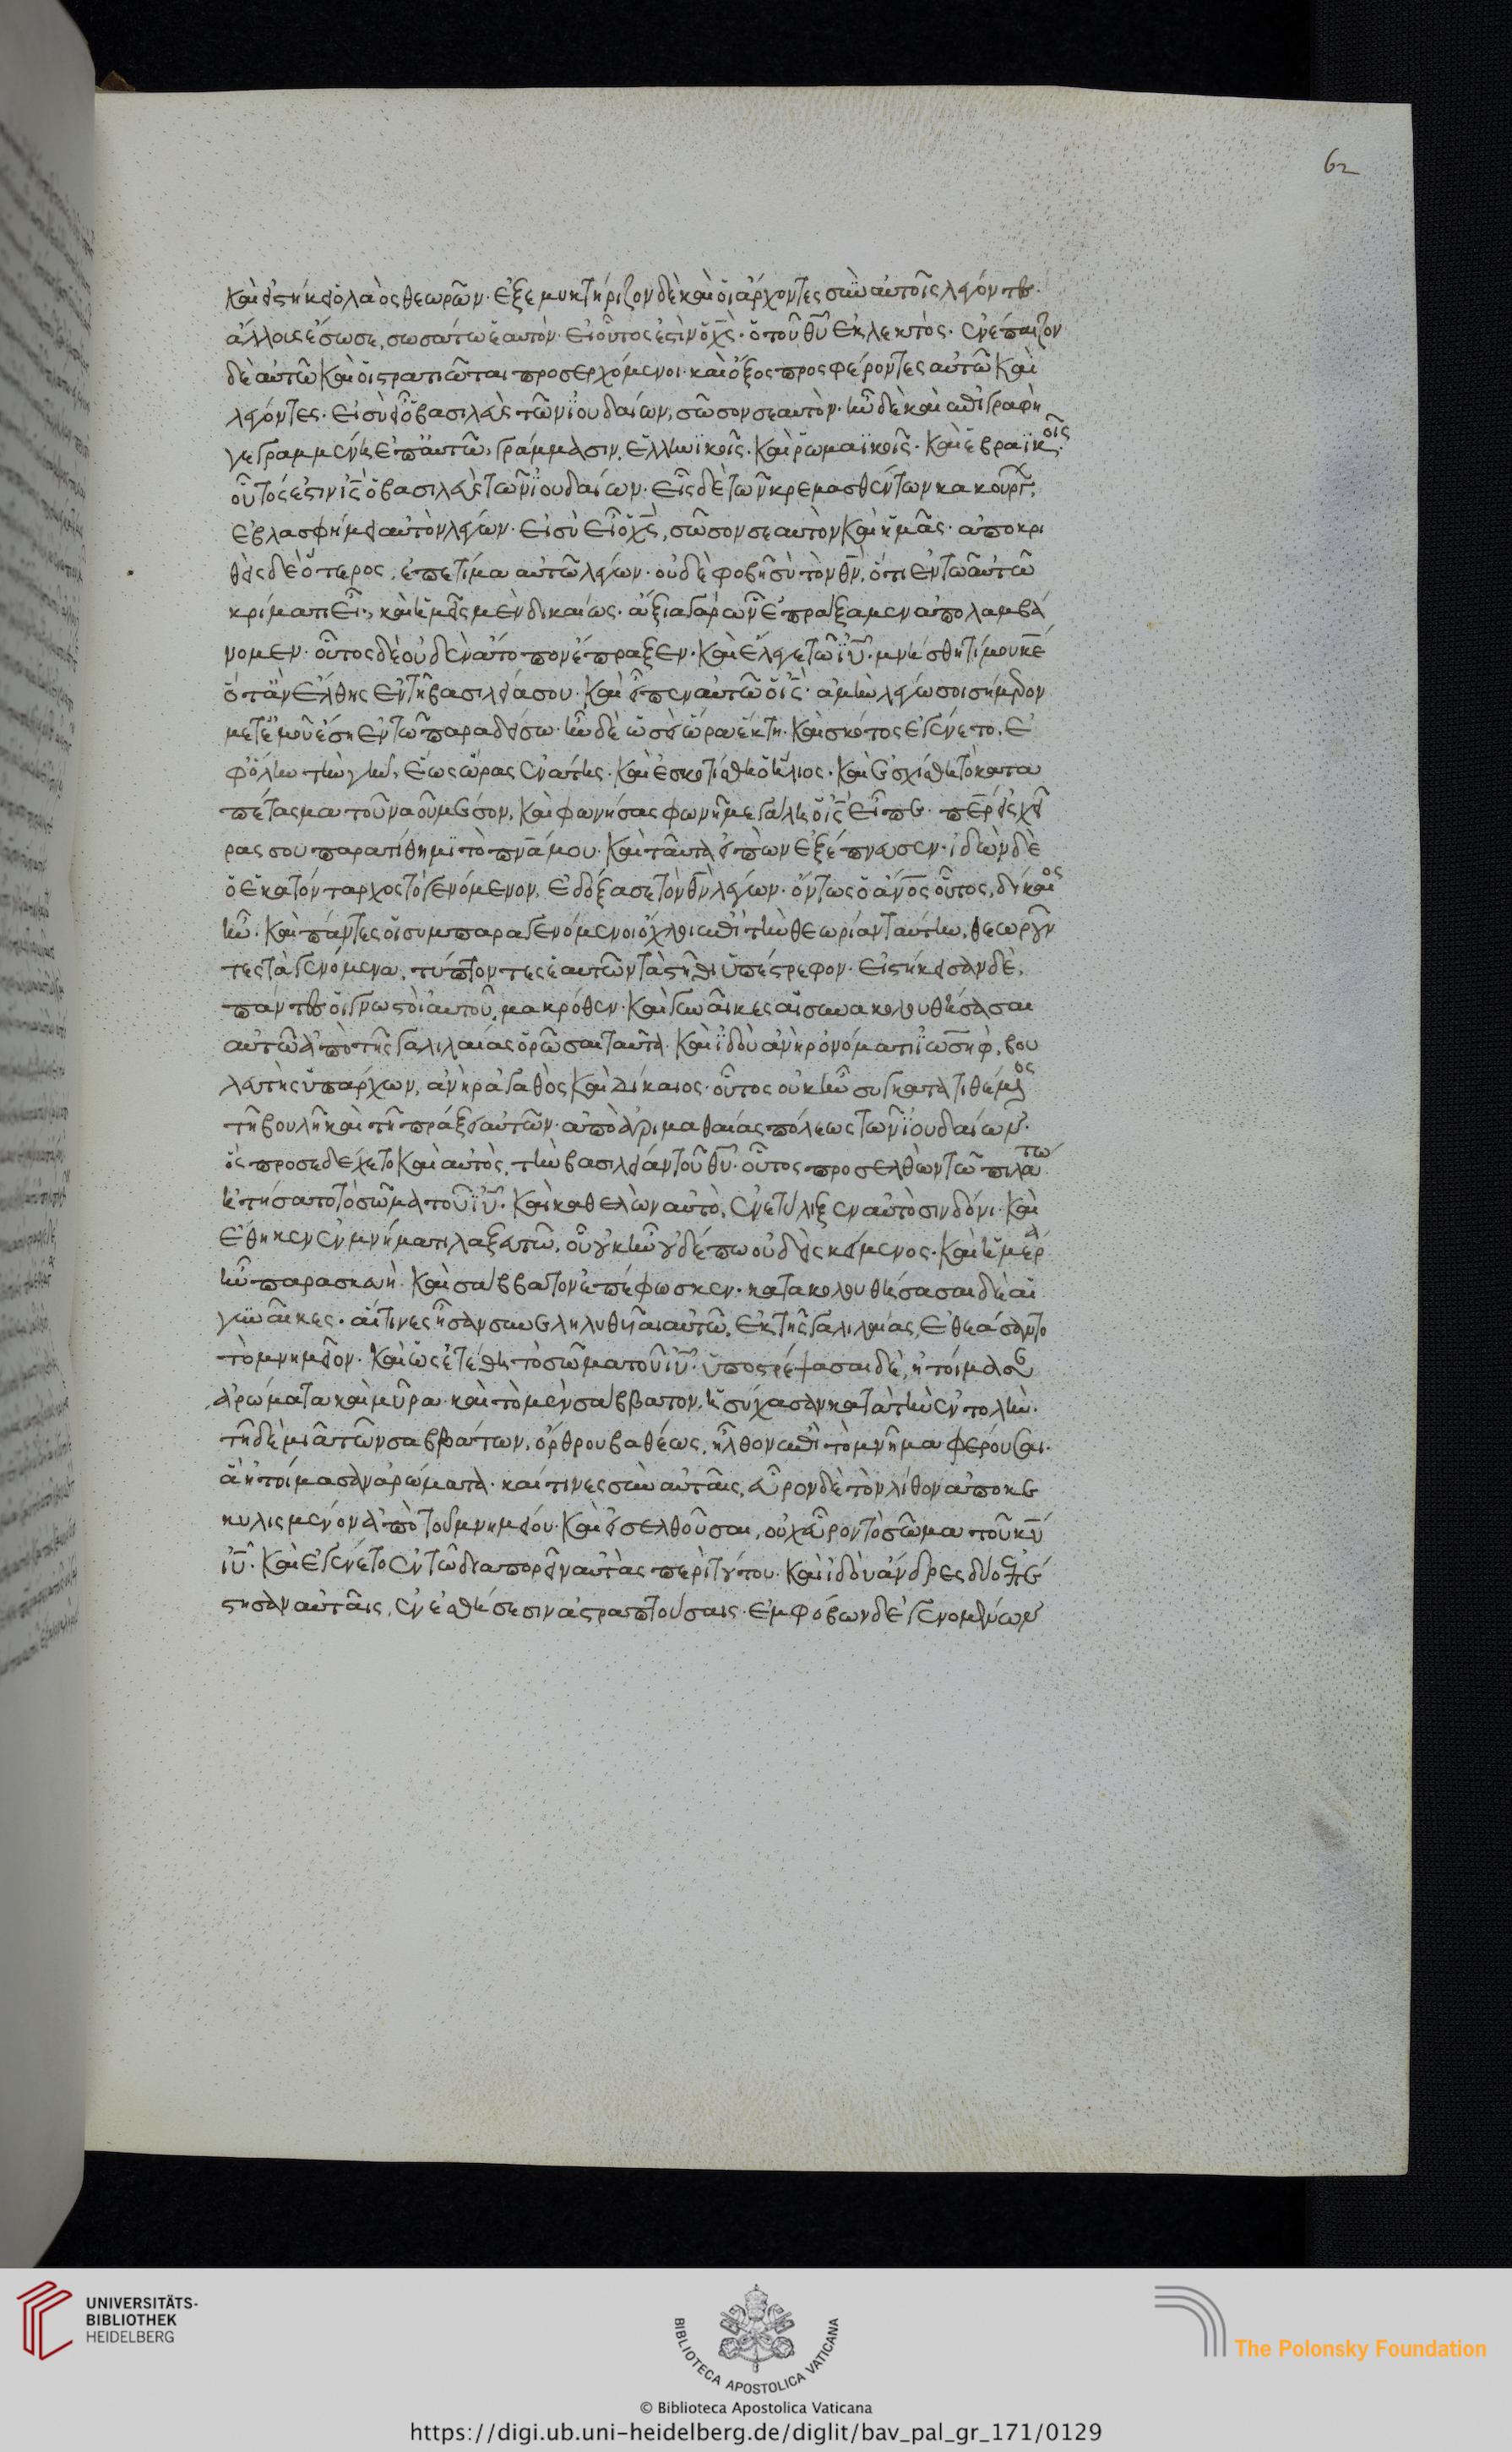 62
καὶ εἱστήκει ὁ λαὸς θεωρῶν· ἐξεμυκτήριζον δὲ καὶ οἱ ἄρχοντες σὺν αὐτοῖς λέγοντες·
ἄλλους ἔσωσε, σωσάτω ἑαυτὸν· εἰ οὗτος ἐστὶν ὁ χς· ὁ τοῦ θυ ἐκλεκτὸς· ἐνέπαιζον
δὲ αὐτῶ καὶ οἱ στρατιῶται προσερχόμενοι· καὶ ὄξος προσφέροντες αὐτῶ καὶ
λέγοντες· εἰ σὺ εἶ ὁ βασιλεὺς τῶν ἰουδαίων, σῶσον σεαυτὸν· ἦν δὲ καὶ ἐπιγραφὴ
γεγραμμένη ἐπ αὐτῶ, γράμμασιν, ἑλληνϊκοῖς· καὶ ῥωμαϊκοῖς· καὶ ἑβραϊκοῖς·
οὗτός ἐστιν ις ὁ βασιλεὺς τῶν ἰουδαίων· εἷς δὲ τῶν κρεμασθέντων κακούργ
ἐβλασφήμει αὐτὸν λέγων· εἰ σὺ εἶ ὁ χς, σῶσον σεαυτὸν καὶ ἡμᾶς· ἀποκρι
θεὶς δὲ ὁ τερος, ἐπετίμα αὐτῶ λέγων· οὐδὲ φοβῆ σὺ τὸν θν, ὅτι ἐν τῶ αὐτῶ
κρίματι εἶ, καὶ ἡμεῖς μὲν δικαίως· ἄξια γὰρ ὧν ἐπράξαμεν ἀπολαμβά
νομεν· οὗτος δὲ οὐδὲν ἄτοπον ἔπραξεν· καὶ ἔλεγε τῶ ιυ· μνήσθητί μου κε
ὅταν ἔλθης ἐν τῆ βασιλείᾳ σου· καὶ εἶπεν αὐτῶ ὁ ις· ἀμὴν λέγω σοι σήμερον
μετ ἐμοῦ ἔση ἐν τῶ παραδείσω· ἦν δὲ ὡσεὶ ὥρα ἕκτη· καὶ σκότος ἐγένετο, ἐ
φ ὅλην τὴν γῆν, ἕως ὥρας ἐνάτης· καὶ ἐσκοτίσθη ὁ ἥλιος· καὶ ἐσχίσθη τὸ κατα
πέτασμα τοῦ ναοῦ μέσον, καὶ φωνήσας φωνῆ μεγάλη ὁ ις εἶπε· περ εἰς χεῖ
ρας σου παρατίθημϊ τὸ πνα μου· καὶ ταῦτα εἰπὼν ἐξέπνευσεν· ἰδὼν δὲ
ὁ ἑκατόνταρχος τὸ γενόμενον, ἐδόξασε τὸν θν λέγων· ὄντως ὁ ανος οὗτος, δίκαιος
ἦν· καὶ πάντες οἱ συμπαραγενόμενοι ὄχλοι ἐπὶ τὴν θεωρίαν ταύτην, θεωροῦν
τες τὰ γενόμενα, τύπτοντες ἑαυτῶν τὰ στήθη ὑπέστρεφον· εἱστήκεισαν δὲ,
πάντες οἱ γνωστοὶ αὐτοῦ, μακρόθεν· καὶ γυναῖκες αἱ συνακολουθήσασαι
αὐτῶ ἀπὸ τῆς γαλιλαίας ὁρῶσαι ταῦτα· καὶ ἰδοὺ ἀνὴρ ὀνόματι ἰωσὴφ, βου
λευτὴς ὑπάρχων, ἀνὴρ ἀγαθὸς καὶ δίκαιος· οὗτος οὐκ ἦν συγκατατιθέμενος
τῆ βουλῆ καὶ τῆ πράξει αὐτῶν· ἀπὸ ἀριμαθαίας πόλεως τῶν ἰουδαίων·
ὃς προσεδέχετο καὶ αὐτὸς, τὴν βασιλείαν τοῦ θυ· οὗτος προσελθὼν τῶ πιλάτω
ἠτήσατο τὸ σῶμα τοῦ ιυ· καὶ καθελὼν αὐτὸ, ἐνετύλιξεν αὐτὸ σινδόνι· καὶ
ἔθηκεν ἐν μνήματι λαξευτῶ, οὗ οὐκ ἦν οὐδέπω οὐδεὶς κείμενος· καὶ ἡμέρα
ἦν παρασκευὴ· καὶ σάββατον ἐπέφωσκεν· κατακολουθήσασαι δὲ αἱ
γυναῖκες· αἵτινες ἦσαν συνεληλυθυῖαι αὐτῶ, ἐκ τῆς γαλιλαίας, ἐθεάσαντο
τὸ μνημεῖον· καὶ ὡς ἐτέθη τὸ σῶμα τοῦ ιυ· ὑποστρέψασαι δὲ, ἡτοίμασαν
ἀρώματα καὶ μῦρα· καὶ τὸ μὲν σάββατον, ἡσύχασαν κατὰ τὴν ἐντολὴν·
τῆ δὲ μιᾶ τῶν σαββάτων, ὄρθρου βαθέως, ἦλθον ἐπὶ τὸ μνῆμα φέρουσαι·
ἃ ἡτοίμασαν ἀρώματα· καί τινες σὺν αὐταῖς, εὗρον δὲ τὸν λίθον ἀποκε
κυλισμένον ἀπὸ τοῦ μνημείου· καὶ εἰσελθοῦσαι, οὐχ εὗρον τὸ σῶμα τοῦ κυ
ιυ· καὶ ἐγένετο ἐν τῶ διαπορεῖν αὐτὰς περὶ τούτου· καὶ ἰδοὺ ἄνδρες δύο ἐπέ
στησαν αὐταῖς, ἐν ἐσθήσεσιν ἀστραπτούσαις· ἐμφόβων δὲ γενομένων
UNIVERSITÄTS-
BIBLIOTHEK
HEIDELBERG
BIBLIOTECA APOSTOLICA VATICANA
The Polonsky Foundation
© Biblioteca Apostolica Vaticana
https://digi.ub.uni-heidelberg.de/diglit/bav_pal_gr_171/0129